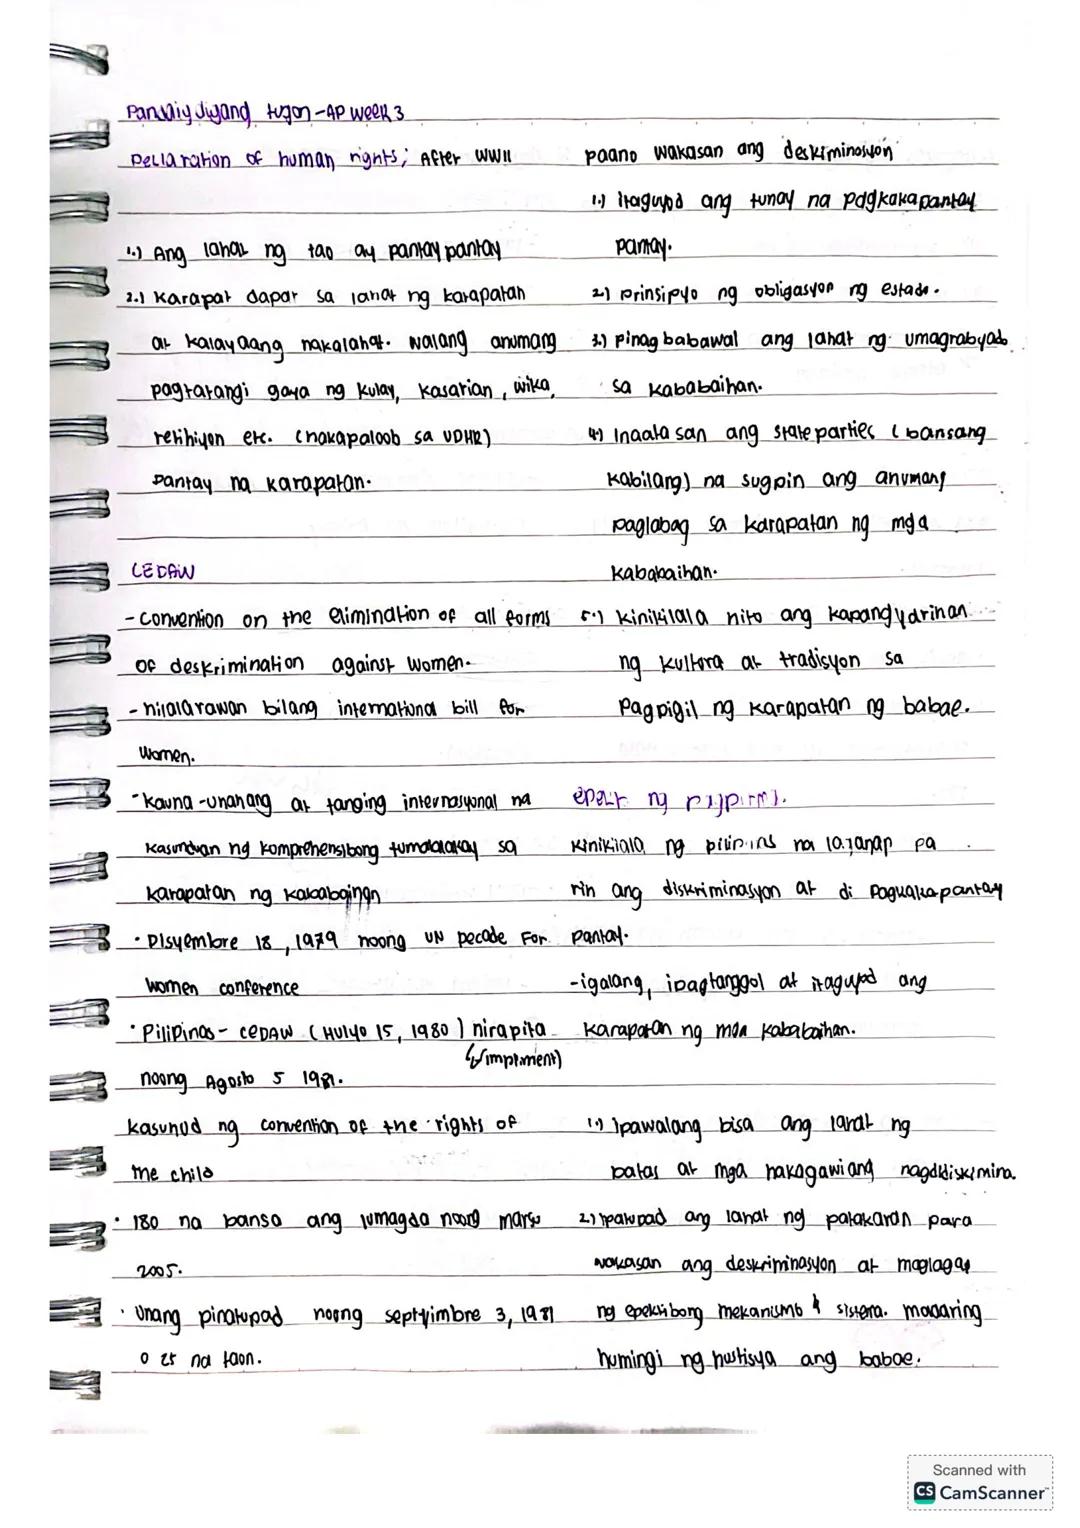 Pandaigdigang tugon - AP week 3
Declaration of human rights; After WWII
1.) Ang lahat ng tao ay pantay pantay
2.) Karapat dapat sa lahat ng karapatan
at kalayaang nakalahat. walang anumang
pagtatangi gaya ng kulay, kasarian, wika,
relihiyon etc. (nakapaloob sa UDHR)
pantay na karapatan.
CEDAW
- Convention on the elimination of all forms
of deskrimination against women.
- nilalarawan bilang international bill for
women.
- kauna-unahang at tanging internasyonal na
kasunduan ng komprehensibong tumatalakay sa
karapatan ng
• Disyembre 18, 1979 noong UN Decade For
women conference
• Pilipinas - CEDAW (Hulyo 15, 1980) nirapita
(impliment)
noong Agosto 5 1981.
kasunod ng convention of the rights of
the child
• 180 na bansa ang lumagda noong marso
2005.
• Unang pinatupad noong septyimbre 3, 1981
o 25 na taon.
paano wakasan ang deskiminasyon
1.) Itaguyod ang tunay na pagkakapantay
pantay.
2.) prinsipyo ng obligasyon ng estado.
3.) pinagbabawal ang lahat ng umagrabyado
sa kababaihan.
4.) Inaatasan ang state parties (bansang
kabilang) na sugpin ang anumang
paglabag sa karapatan ng mga
kababaihan.
5.) kinikilala nito ang kapangyarihan
ng kultura at tradisyon sa
pagpigil ng karapatan ng babae.
epekt ng
kinikilala ng pilipinas na laganap pa
rin ang diskriminasyon at di pagkakapantay
pantay.
- igalang, ipagtanggol at itaguyod ang
karapatan ng mga kababaihan.
1.) Ipawalang bisa ang lahat ng
batas at mga nakagawiang nagdidiskimina.
2.) ipatupad ang lahat ng patakaran para
wakasan ang deskriminasyon at maglagay
ng epektibong mekanismo & sistema. maaaring
humingi ng hustisya ang babae.
Scanned with
CS CamScanner